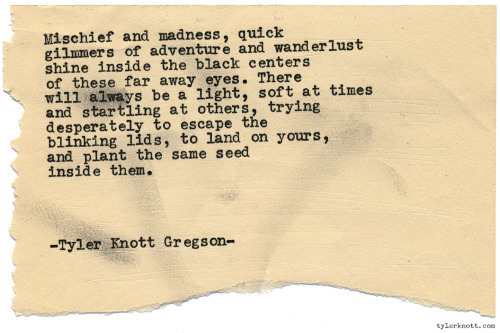 Mischief and madness, quick
gilmmers of adventure and wanderlust
shine inside the black centers
of these far away eyes. There
will always be a light, soft at times
and startling at others, trying
desperately to escape the
blinking lids, to land on yours,
and plant the same seed
inside them.
-Tyler Knott Gregson-
tylerknott.com